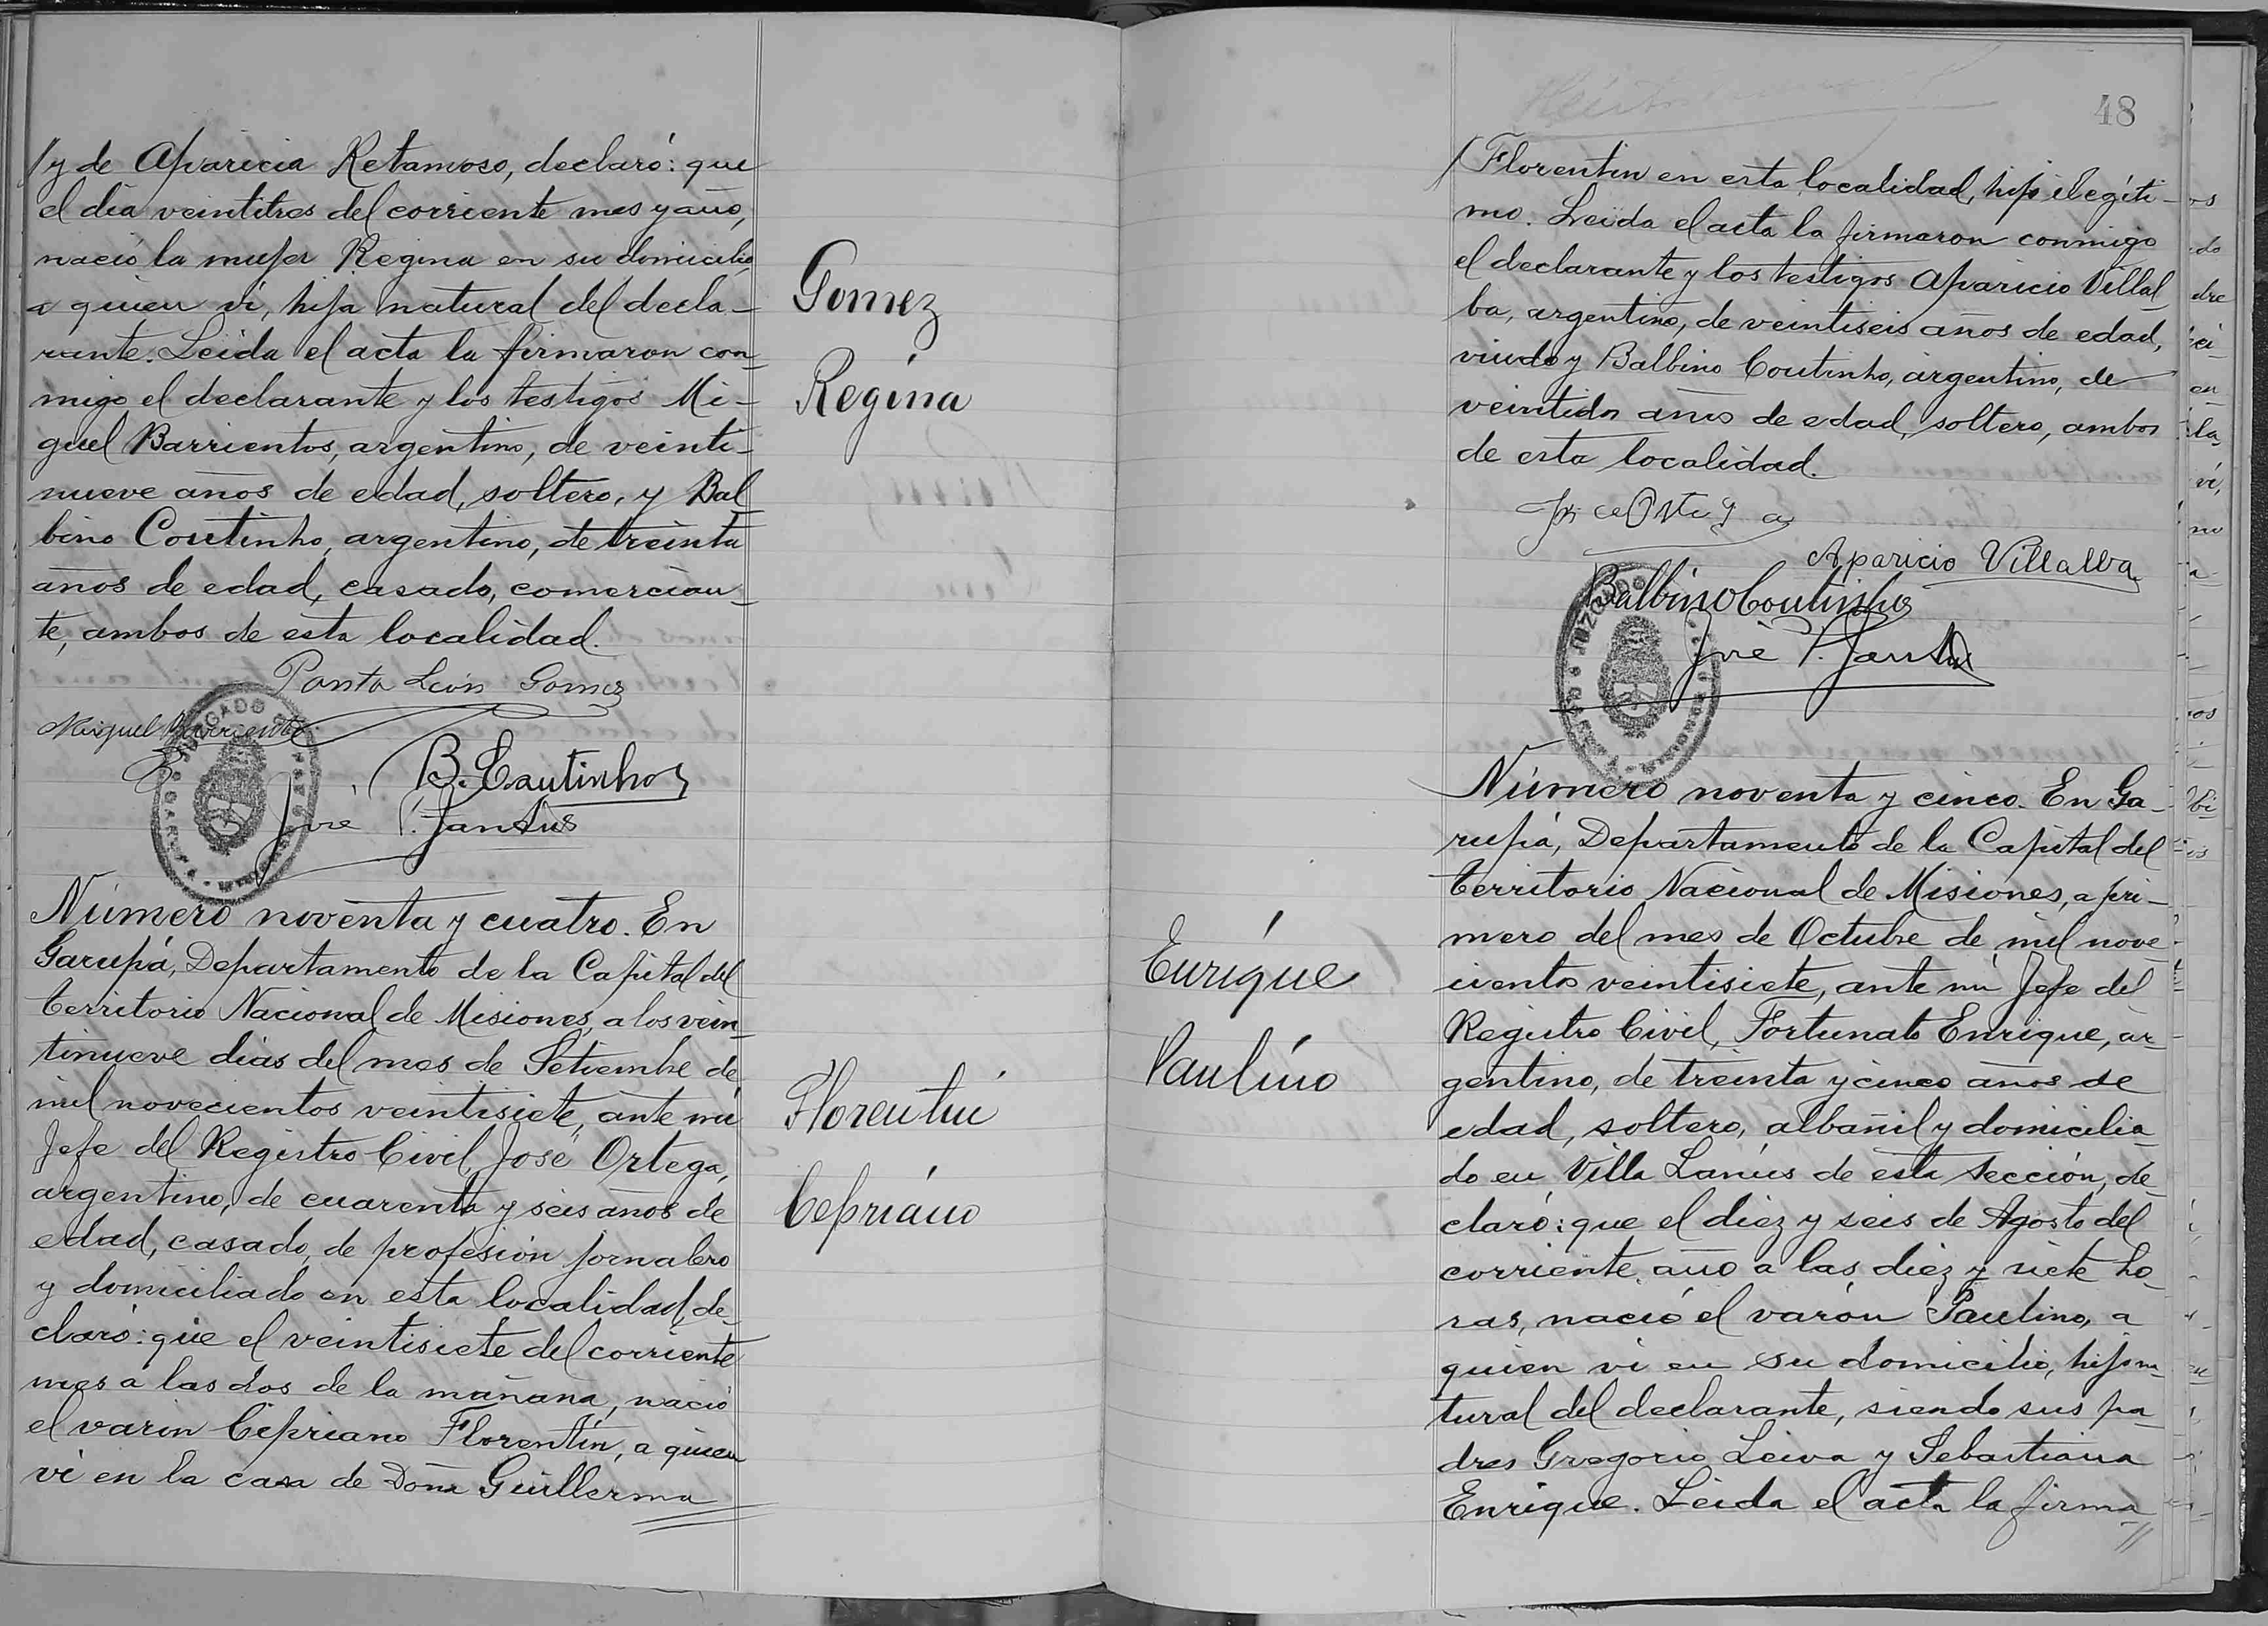 / y de Aparicia Retamoso, declaró: que
el día veintitres del corriente mes y año,
nació la mujer Regina en su domicilio,
a quien ví, hija natural del decla-
rante. Leida el acta la firmaron con-
migo el declarante y los testigos Mi-
guel Barrientos, argentino, de veinti-
nueve años de edad, soltero, y Bal-
bino Coutinho, argentino, de treinta
años de edad, casado, comercian-
te, ambos de esta localidad.
Panta León Gomez
Miguel Barrientos
B. Coutinho
José P. Jansus
Gomez
Regina
Número noventa y cuatro. En
Garupá, Departamento de la Capital del
Territorio Nacional de Misiones, a los vein-
tinueve días del mes de Setiembre de
mil novecientos veintisiete, ante mi
Jefe del Registro Civil, José Ortega,
argentino, de cuarenta y seis años de
edad, casado, de profesión jornalero
y domiciliado en esta localidad, de-
claró: que el veintisiete del corriente
mes a las dos de la mañana, nació
el varón Cipriano Florentín, a quien
ví en la casa de Doña Guillerma
Florentin
Cepriano
48
/ Florentin en esta localidad, hijo ilegíti-
mo. Leida el acta la firmaron conmigo
el declarante y los testigos Aparicio Villal-
ba, argentino, de veintiseis años de edad,
viudo y Balbino Coutinho, argentino, de
veintidos años de edad, soltero, ambos
de esta localidad.
Aparicio Villalva
Balbino Coutinho
José P. Jansus
Enrique
Paulino
Número noventa y cinco. En Ga-
rupá, Departamento de la Capital del
Territorio Nacional de Misiones, a pri-
mero del mes de Octubre de mil nove-
cientos veintisiete, ante mi Jefe del
Registro Civil, Fortunato Enrique, ar-
gentino, de treinta y cinco años de
edad, soltero, albañil y domicilia-
do en Villa Lanús de esta sección, de-
claró: que el diez y seis de Agosto del
corriente año a las diez y siete ho-
ras, nació el varón Paulino, a
quien ví en su domicilio, hijo na-
tural del declarante, siendo sus pa-
dres Gregorio Leiva y Sebastiana
Enrique. Leida el acta la firma